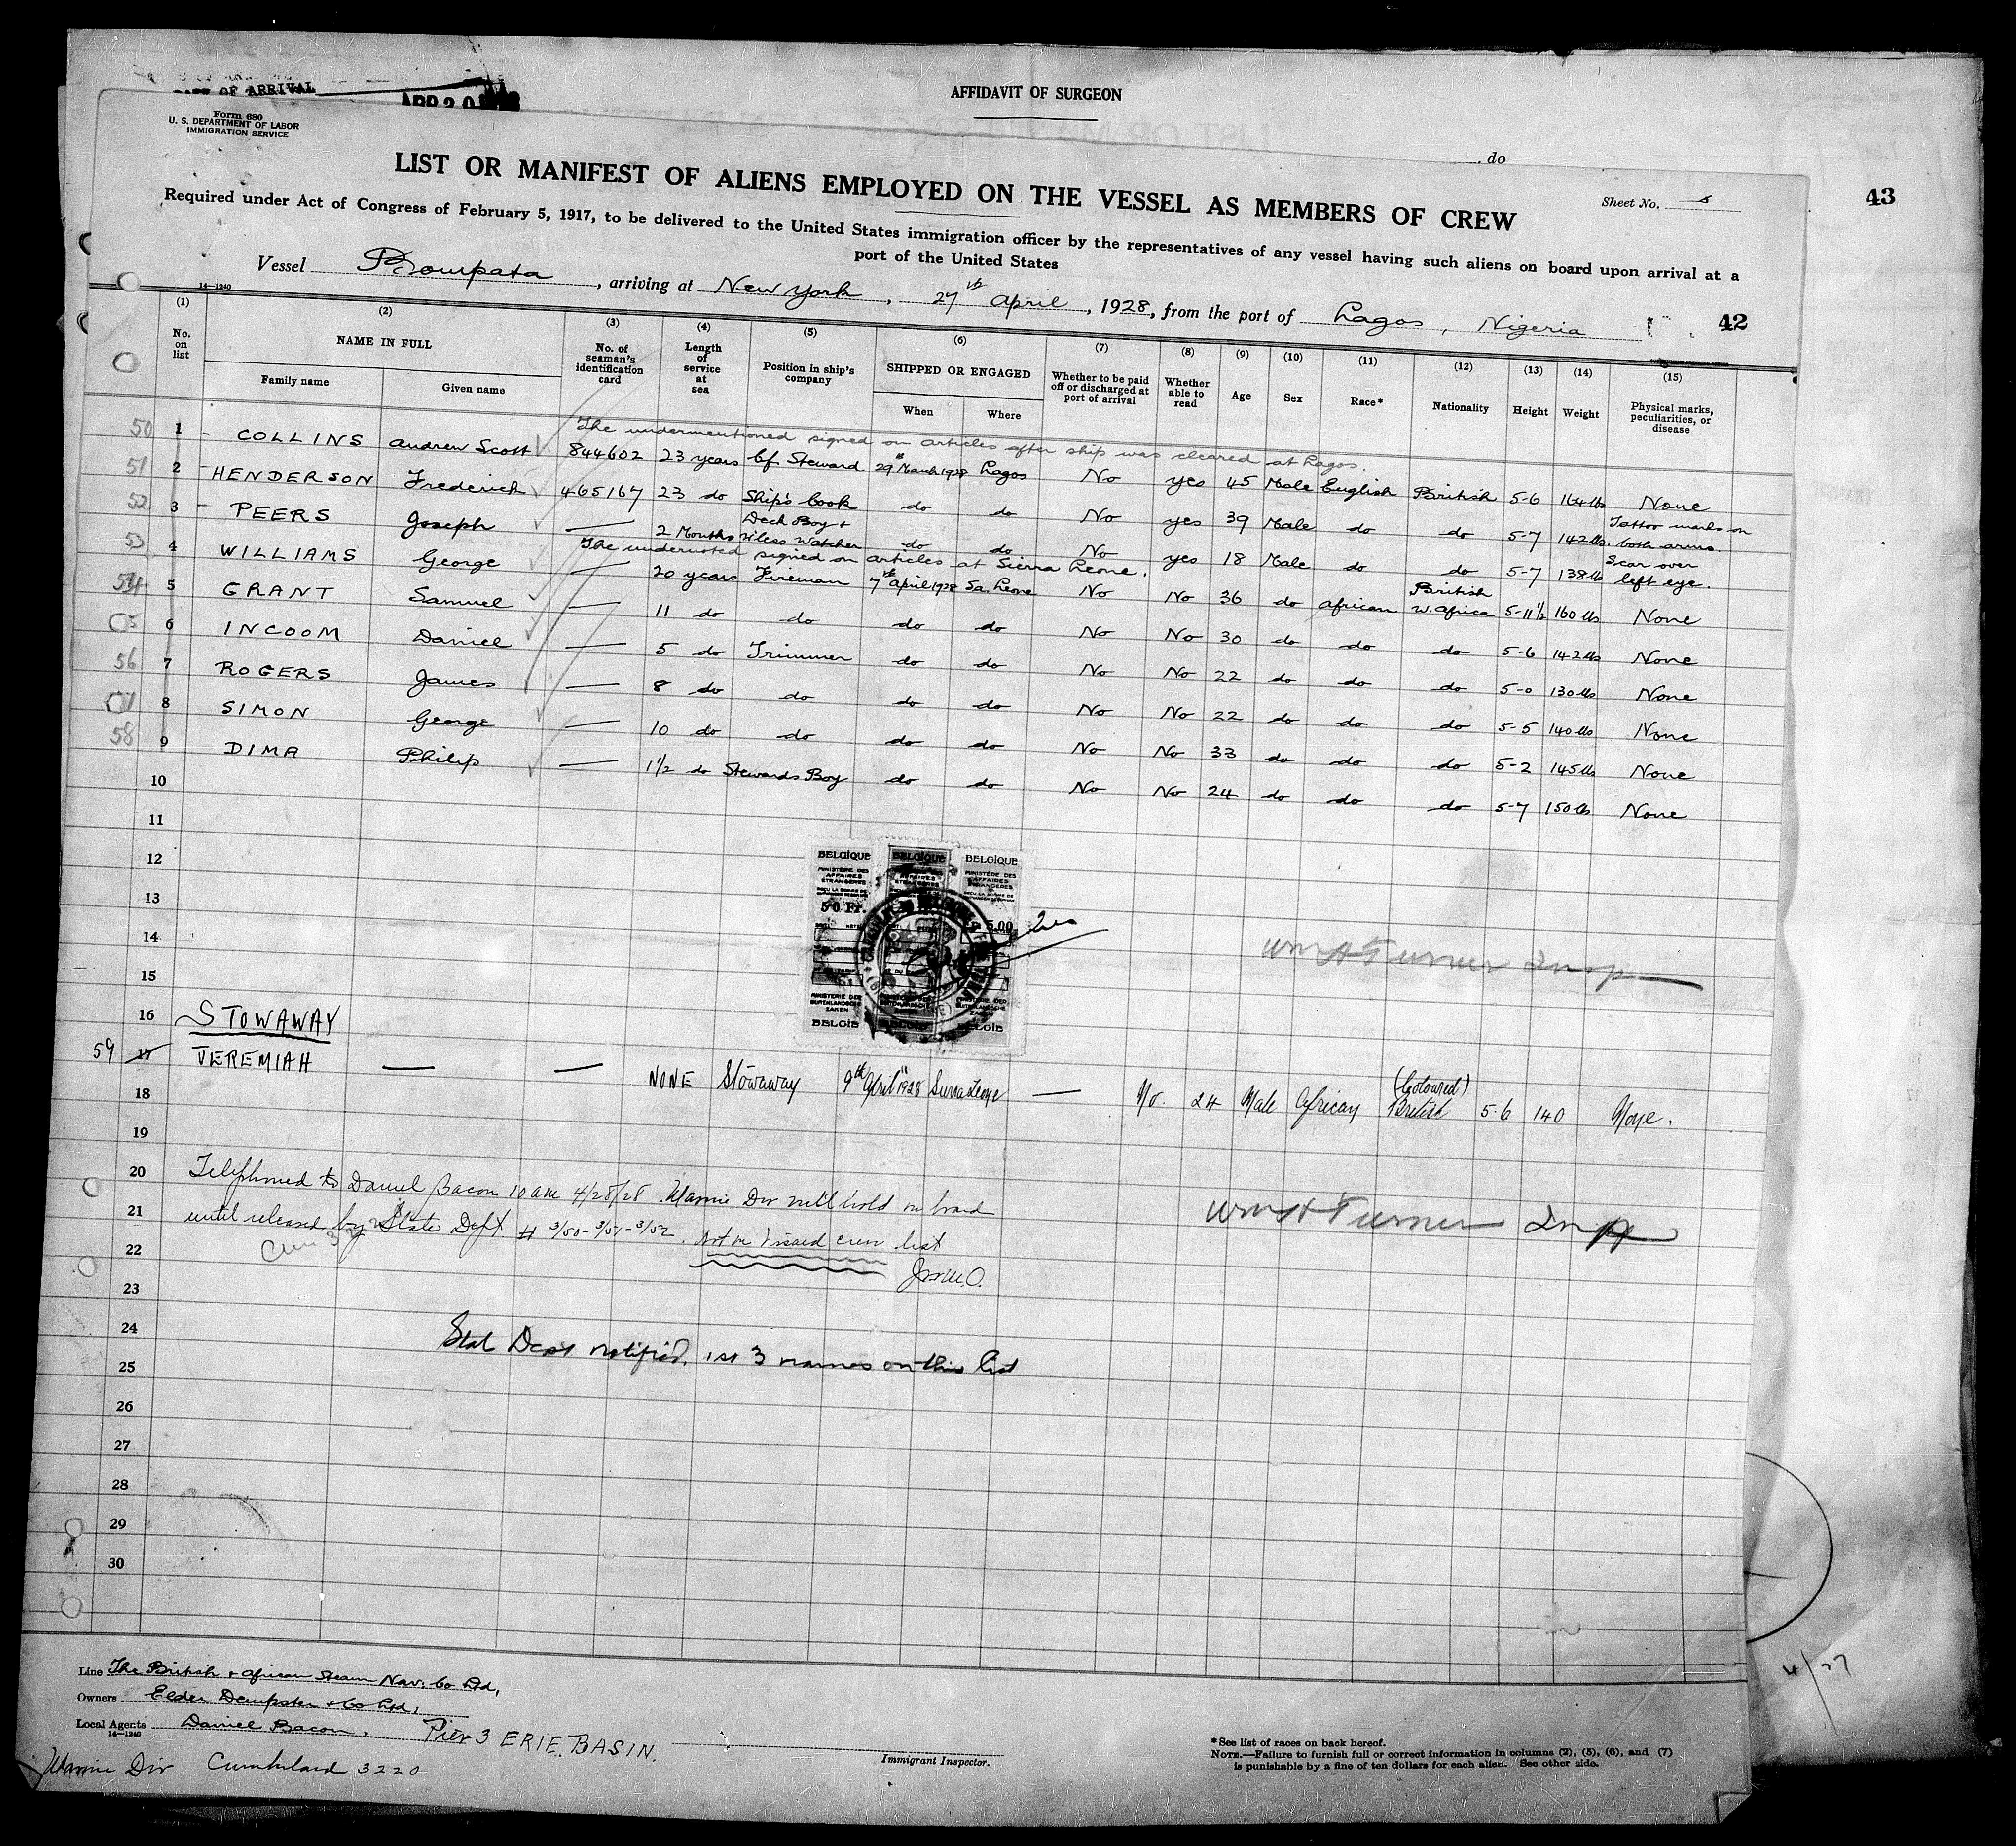 DATE OF ARRIVAL APR 20
AFFIDAVIT OF SURGEON
Form 680
U. S. DEPARTMENT OF LABOR
IMMIGRATION SERVICE
, do
LIST OR MANIFEST OF ALIENS EMPLOYED ON THE VESSEL AS MEMBERS OF CREW
Sheet No.
43
Required under Act of Congress of February 5, 1917, to be delivered to the United States immigration officer by the representatives of any vessel having such aliens on board upon arrival at a
port of the United States
Vessel Bompata, arriving at New York, 27th April, 1928, from the port of Lagos, Nigeria
42
14—1240
(1) (2) (3) (4) (5) (6) (7) (8) (9) (10) (11) (12) (13) (14) (15)
No. on list NAME IN FULL Family name Given name No. of seaman's identification card Length of service at sea Position in ship's company SHIPPED OR ENGAGED When Where Whether to be paid off or discharged at port of arrival Whether able to read Age Sex Race* Nationality Height Weight Physical marks, peculiarities, or disease
The undermentioned signed on articles after ship was cleared at Lagos.
50 1 COLLINS Andrew Scott 844602 23 years Cf. Steward 29th March 1928 Lagos No yes 45 Male English British 5-6 164 lbs None
51 2 HENDERSON Frederick 465167 23 do Ship's Cook do do No yes 39 Male do do 5-7 142 lbs. Tattoo marks on both arms.
52 3 PEERS Joseph — 2 Months Deck Boy + W'less Watcher do do No yes 18 Male do do 5-7 138 lbs Scar over left eye.
The undernoted signed on articles at Sierra Leone.
53 4 WILLIAMS George — 20 years Fireman 7th April 1928 Sa. Leone No No 36 do African British W. Africa 5-11½ 160 lbs None
54 5 GRANT Samuel — 11 do do do do No No 30 do do do 5-6 142 lbs None
55 6 INCOOM Daniel — 5 do Trimmer do do No No 22 do do do 5-0 130 lbs None
56 7 ROGERS James — 8 do do do do No No 22 do do do 5-5 140 lbs None
57 8 SIMON George — 10 do do do do No No 33 do do do 5-2 145 lbs None
58 9 DIMA Philip — 1½ do Stewards Boy do do No No 24 do do do 5-7 150 lbs None
10
11
12
13
14
15
BELGIQUE BELGIQUE BELGIQUE
MINISTÈRE DES AFFAIRES ETRANGÈRES
50 Fr. 5.00
MINISTERIE DER BUITENLANDSCHE ZAKEN
BELGIË BELGIË
Wm H Turner Insp
16 STOWAWAY
59 17 JEREMIAH — — NONE Stowaway 9th April 1928 Sierra Leone — No. 24 Male African (Coloured) British 5-6 140 None.
18
19
20
Telephoned to Daniel Bacon 10 am 4/28/28. Marine Div will hold on board
21
until released by State Dept # 3/50-3/51-3/52. Not on visaed crew list
Wm H Turner Insp
22
23
24
State Dept notified, 1st 3 names on this list
25
26
27
28
29
30
Line The British & African Steam Nav. Co Ltd,
Owners Elder Dempster & Co Ltd,
Local Agents Daniel Bacon, Pier 3 ERIE. BASIN.
14—1240
Marine Div Cumberland 3220
Immigrant Inspector.
*See list of races on back hereof.
NOTE.—Failure to furnish full or correct information in columns (2), (5), (6), and (7)
is punishable by a fine of ten dollars for each alien. See other side.
4/27